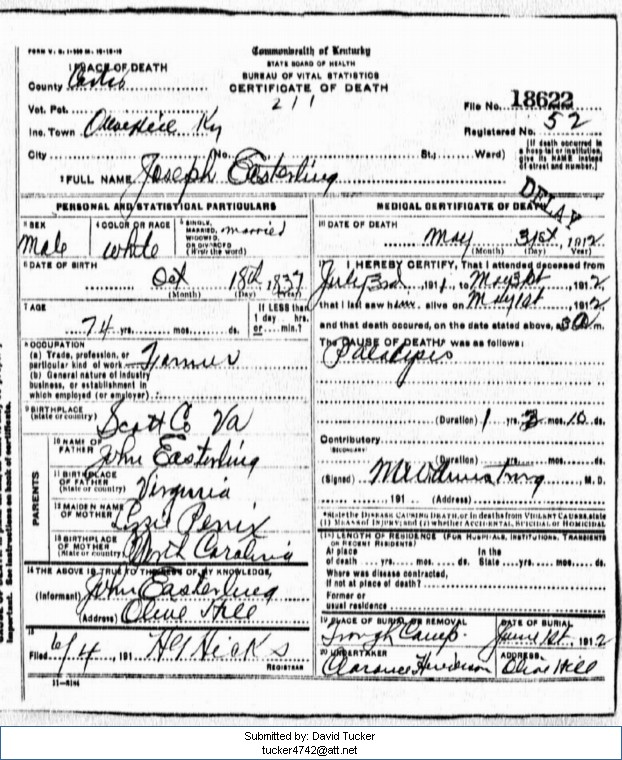 FORM V. S. 1
Commonwealth of Kentucky
STATE BOARD OF HEALTH
BUREAU OF VITAL STATISTICS
CERTIFICATE OF DEATH
1 PLACE OF DEATH
County
Vot. Pct.
Inc. Town Olive Hill Ky
City (No. St.; Ward)
211
File No. 18622
Registered No. 52
(If death occurred in a hospital or institution, give its NAME instead of street and number.)
2 FULL NAME Joseph Easterling
DELAY
PERSONAL AND STATISTICAL PARTICULARS
3 SEX
Male
4 COLOR OR RACE
White
5 SINGLE, MARRIED, WIDOWED, OR DIVORCED (Write the word)
married
6 DATE OF BIRTH
Oct 18th, 1837
(Month) (Day) (Year)
7 AGE
74 yrs. mos. ds.
If LESS than 1 day hrs. or min.?
8 OCCUPATION
(a) Trade, profession, or particular kind of work Farmer
(b) General nature of industry business, or establishment in which employed (or employer)
9 BIRTHPLACE
(State or country) Scott Co Va
PARENTS
10 NAME OF FATHER John Easterling
11 BIRTHPLACE OF FATHER (State or country) Virginia
12 MAIDEN NAME OF MOTHER Lizzie
13 BIRTHPLACE OF MOTHER (State or country) North Carolina
14 THE ABOVE IS TRUE TO THE BEST OF MY KNOWLEDGE,
(Informant) John Easterling
(Address) Olive Hill
15
Filed 6/4, 191 Hicks
REGISTRAR
MEDICAL CERTIFICATE OF DEATH
16 DATE OF DEATH
May 31st, 1912
(Month) (Day) (Year)
17 I HEREBY CERTIFY, That I attended deceased from
July 3rd, 191 , to May 31st, 1912,
that I last saw h alive on May 1st, 1912,
and that death occured, on the date stated above, at m.
The CAUSE OF DEATH* was as follows:
Paralysis
(Duration) 1 yrs. mos. 10 ds.
Contributory
(SECONDARY)
(Duration) yrs. mos. ds.
(Signed) M. D.
, 191 (Address)
*State the DISEASE CAUSING DEATH, or in deaths from VIOLENT CAUSES, state (1) MEANS OF INJURY; and (2) whether ACCIDENTAL, SUICIDAL or HOMICIDAL
18 LENGTH OF RESIDENCE (FOR HOSPITALS, INSTITUTIONS, TRANSIENTS OR RECENT RESIDENTS)
At place of death yrs. mos. ds. In the State yrs. mos. ds.
Where was disease contracted, if not at place of death?
Former or usual residence
19 PLACE OF BURIAL OR REMOVAL
Trough Camp.
DATE OF BURIAL
June 1st, 1912
20 UNDERTAKER
Clarence Henderson
ADDRESS
Olive Hill
Submitted by: David Tucker
tucker4742@att.net